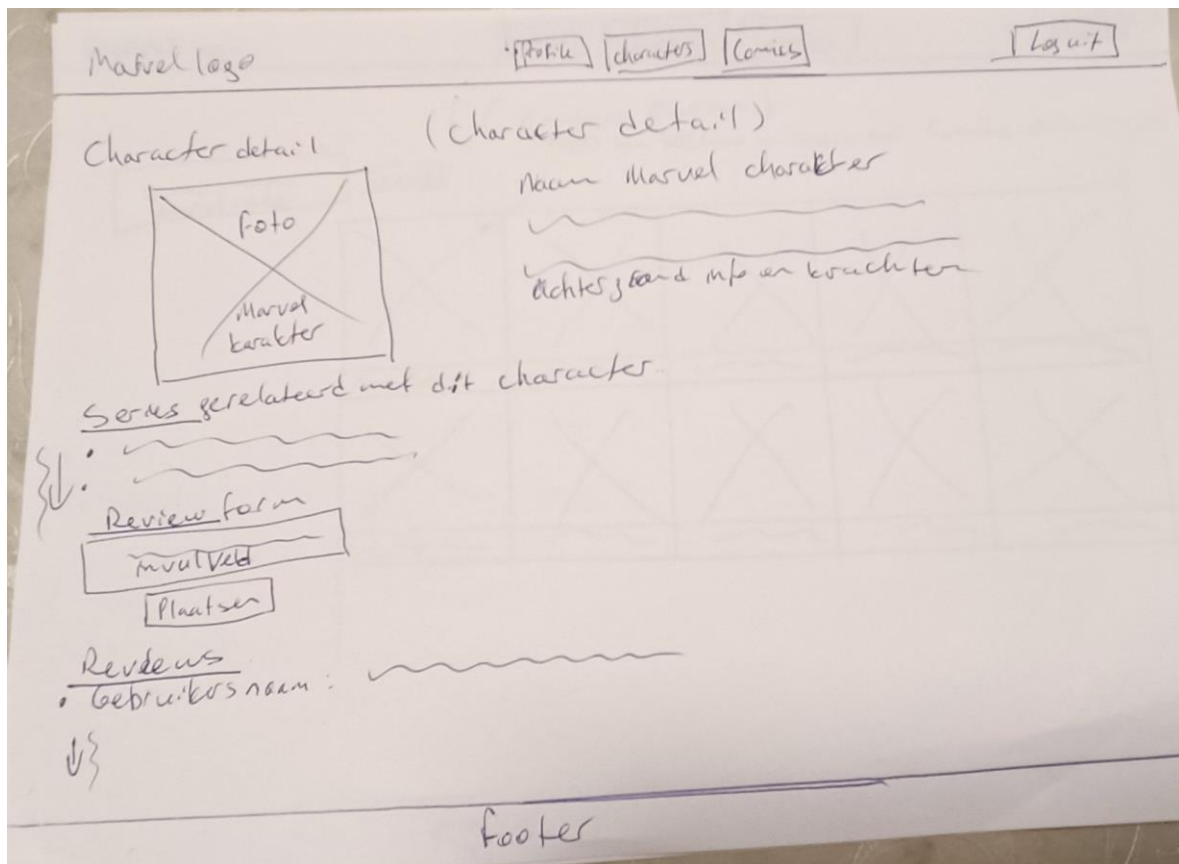 Marvel logo Profile characters Comics Log uit
Character detail (character detail)
Naam Marvel charakter
foto
Marvel
karakter
Achtergrond info en krachten
Series gerelateerd met dit character
Review form
invulveld
Plaatsen
Reviews
• Gebruikersnaam:
footer